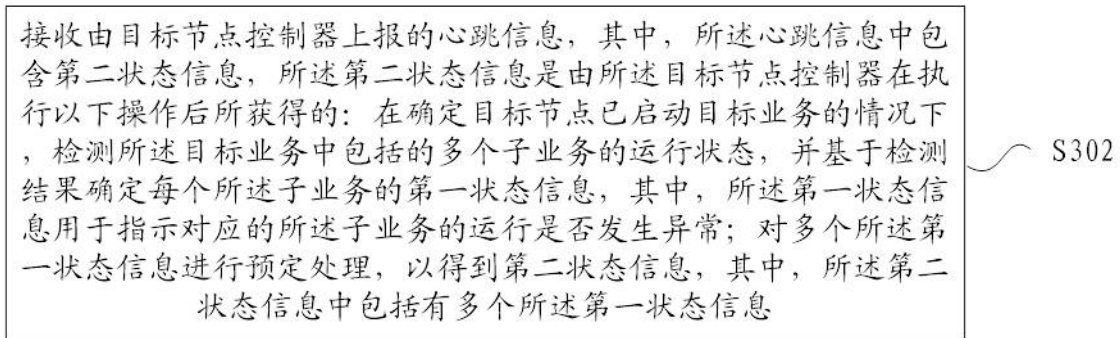 接收由目标节点控制器上报的心跳信息，其中，所述心跳信息中包
含第二状态信息，所述第二状态信息是由所述目标节点控制器在执
行以下操作后所获得的：在确定目标节点已启动目标业务的情况下
，检测所述目标业务中包括的多个子业务的运行状态，并基于检测
结果确定每个所述子业务的第一状态信息，其中，所述第一状态信
息用于指示对应的所述子业务的运行是否发生异常；对多个所述第
一状态信息进行预定处理，以得到第二状态信息，其中，所述第二
状态信息中包括有多个所述第一状态信息
S302